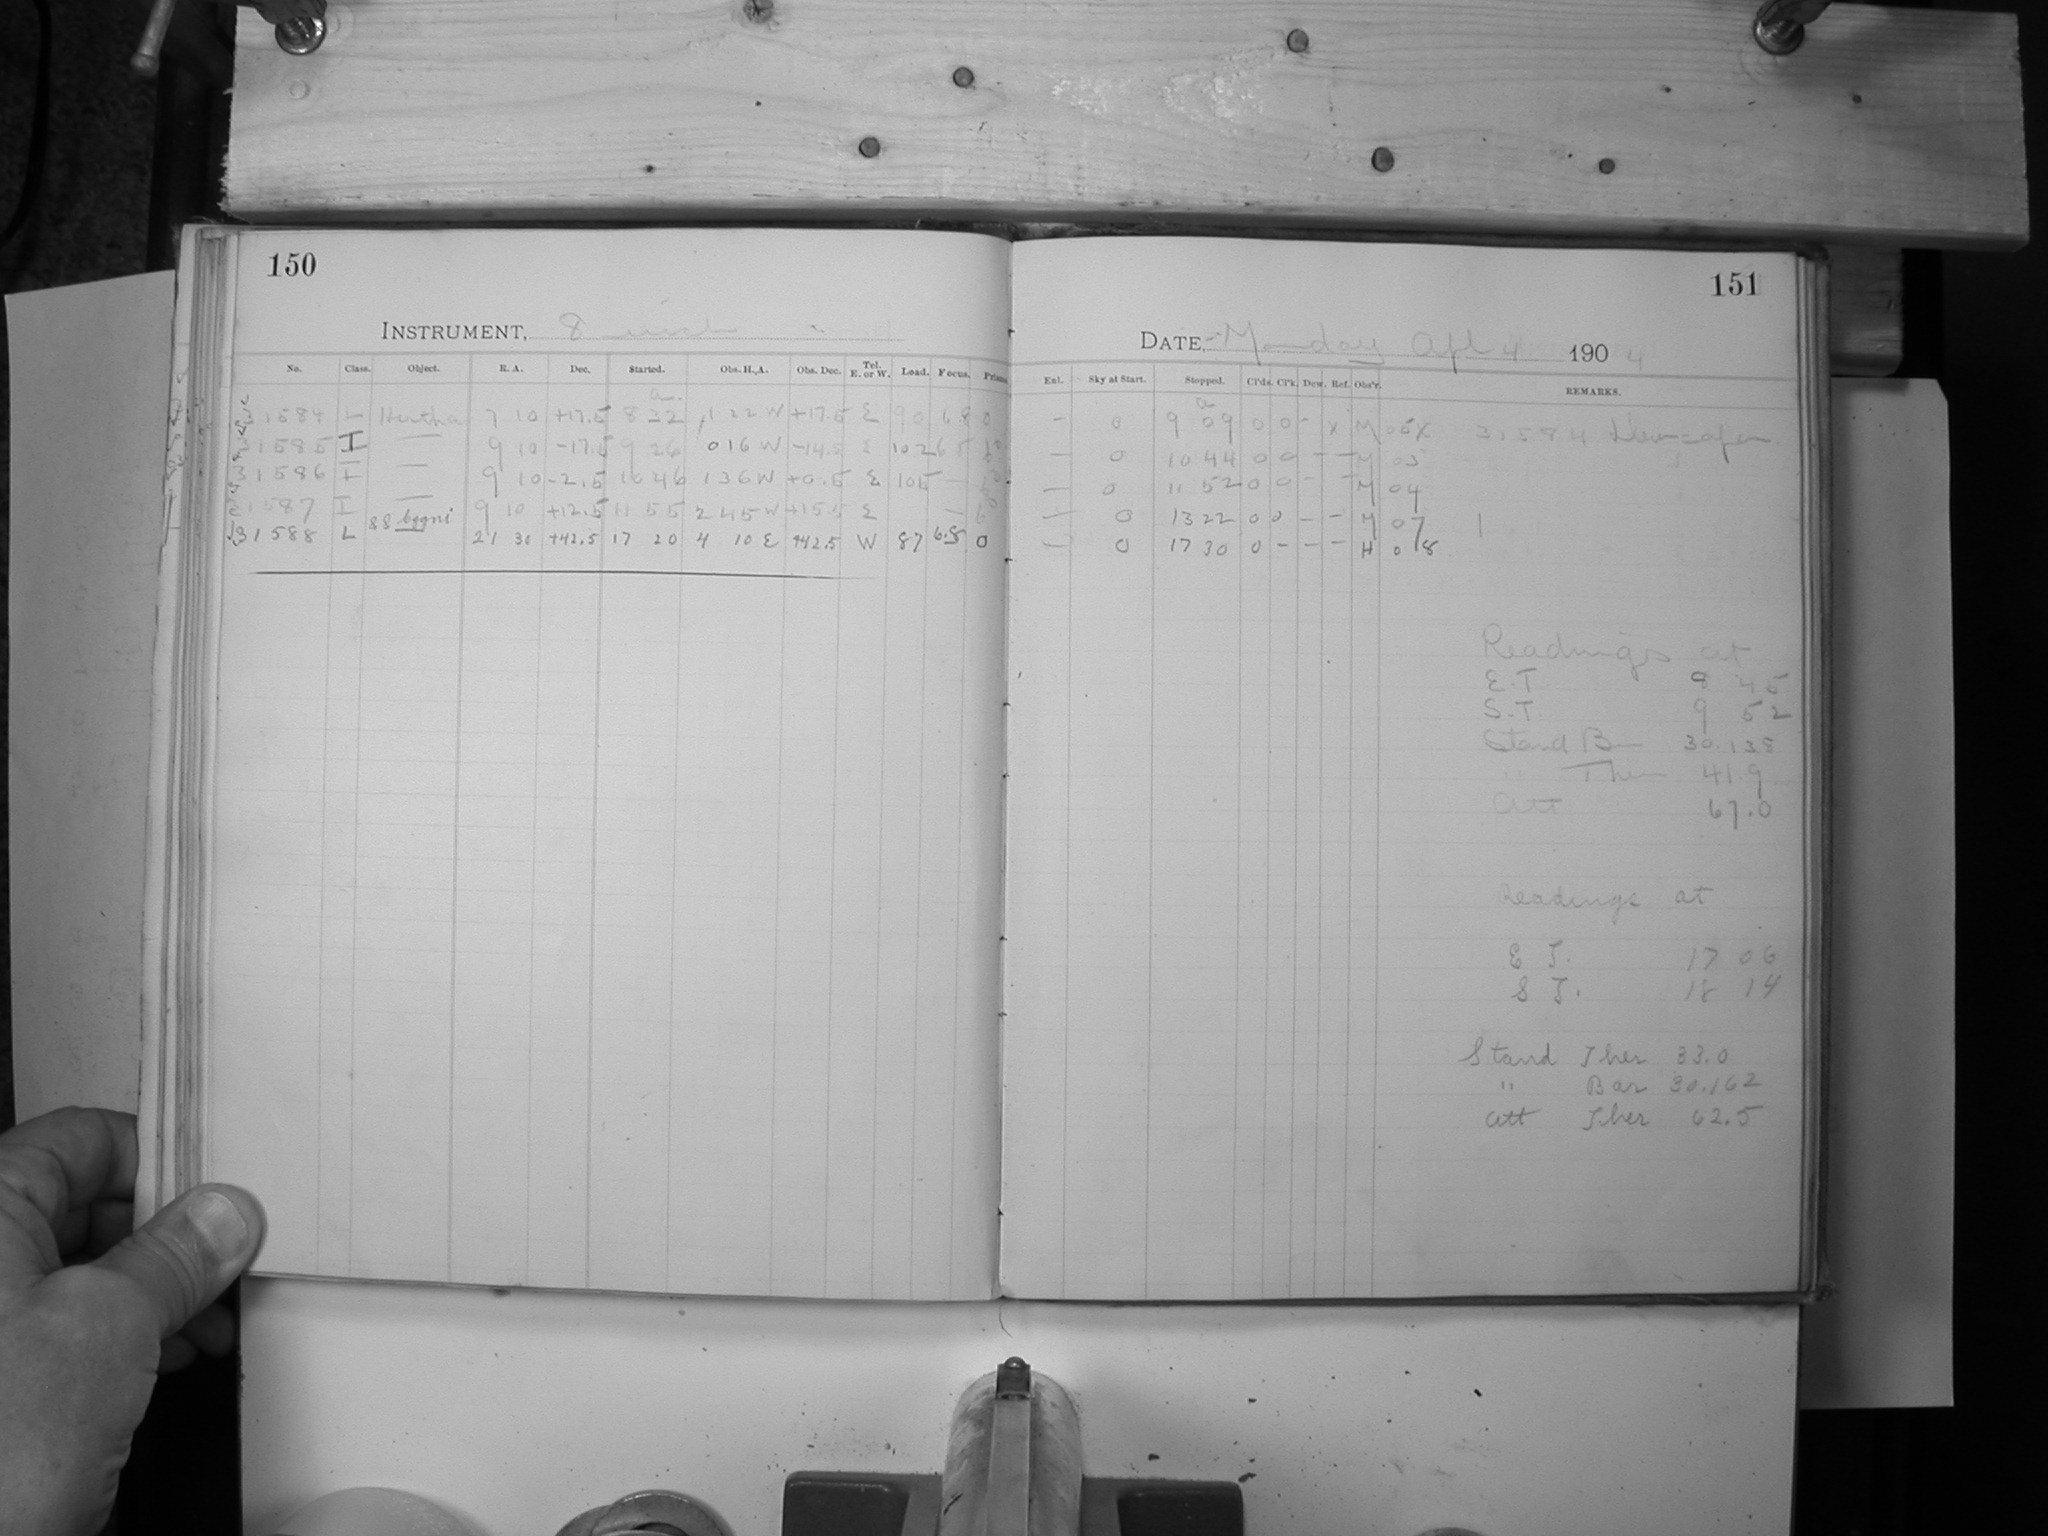 150
INSTRUMENT, 8 inch
No. Class. Object. R. A. Dec. Started. Obs. H. A. Obs. Dec. Tel. E. or W. Load. Focus. Prisms
31584 L Hertha 7 10 +17.5 8 22 1 22 W +17.5 E 90 6.8 0
31585 I — 9 10 -17.5 9 26 0 16 W -14.5 E 102 6.5
31586 I — 9 10 -2.5 10 46 1 36 W +0.5 E 105 —
31587 I — 9 10 +12.5 11 55 2 45 W +15.5 E —
31588 L 88 Cygni 21 30 +42.5 17 20 4 10 E +42.5 W 87 6.5 0
151
DATE, Monday Apl 4 1904
Ent. Sky at Start. Stopped. Cl'ds. Cl'k. Dew. Ref. Obs'r. REMARKS.
— 0 9 09 0 0 - x M 31584
— 0 10 44 0 0 - - M 03
— 0 11 52 0 0 - - M 04
— 0 13 22 0 0 - - M 07
— 0 17 30 0 - - - H 08
Readings at
E.T. 8 45
S.T. 9 52
Stand B 30.135
" Ther 41.9
Att 67.0
Readings at
E T. 17 06
S T. 18 14
Stand Ther 33.0
" Bar 30.162
Att Ther 62.5